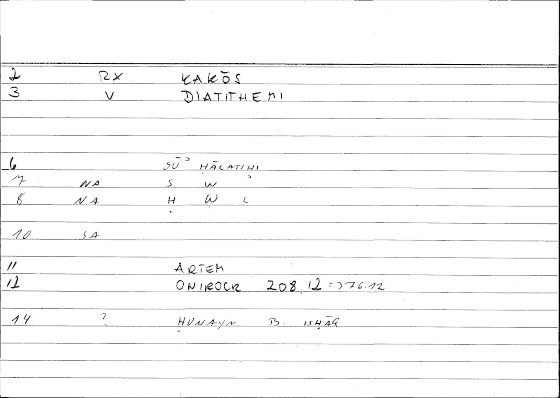 2 RX KAKŌS
3 V DIATITHEMI
6 SŪʾ ḤĀLATIHI
7 NA S W ʾ
8 NA Ḥ W L
10 SA
11 ARTEM
12 ONIROCR 208,12 = 376.12
14 ? ḤUNAYN B. ISḤĀQ